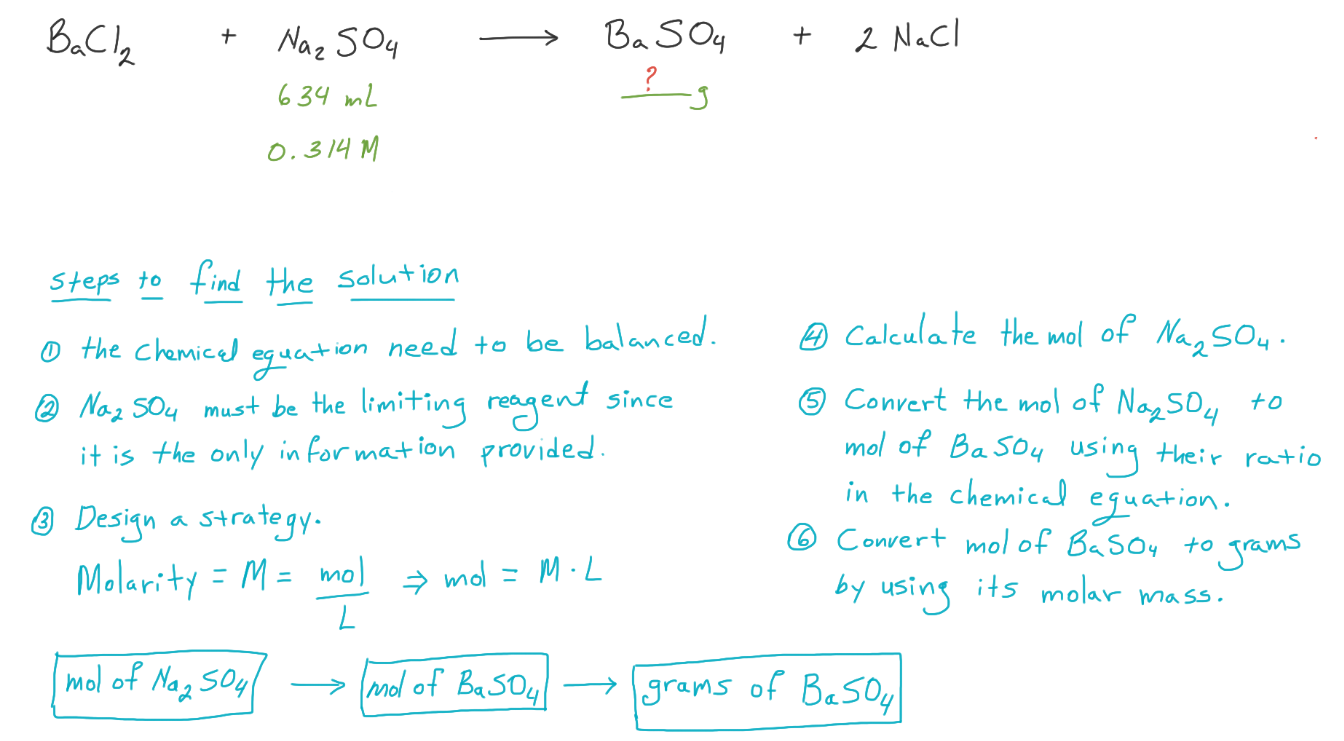 BaCl₂ + Na₂SO₄ ⟶ BaSO₄ + 2 NaCl
634 mL ? g
0.314 M
Steps to find the solution
① the chemical equation need to be balanced.
② Na₂SO₄ must be the limiting reagent since
it is the only information provided.
③ Design a strategy.
Molarity = M = mol/L ⇒ mol = M · L
④ Calculate the mol of Na₂SO₄.
⑤ Convert the mol of Na₂SO₄ to
mol of BaSO₄ using their ratio
in the chemical equation.
⑥ Convert mol of BaSO₄ to grams
by using its molar mass.
mol of Na₂SO₄ ⟶ mol of BaSO₄ ⟶ grams of BaSO₄